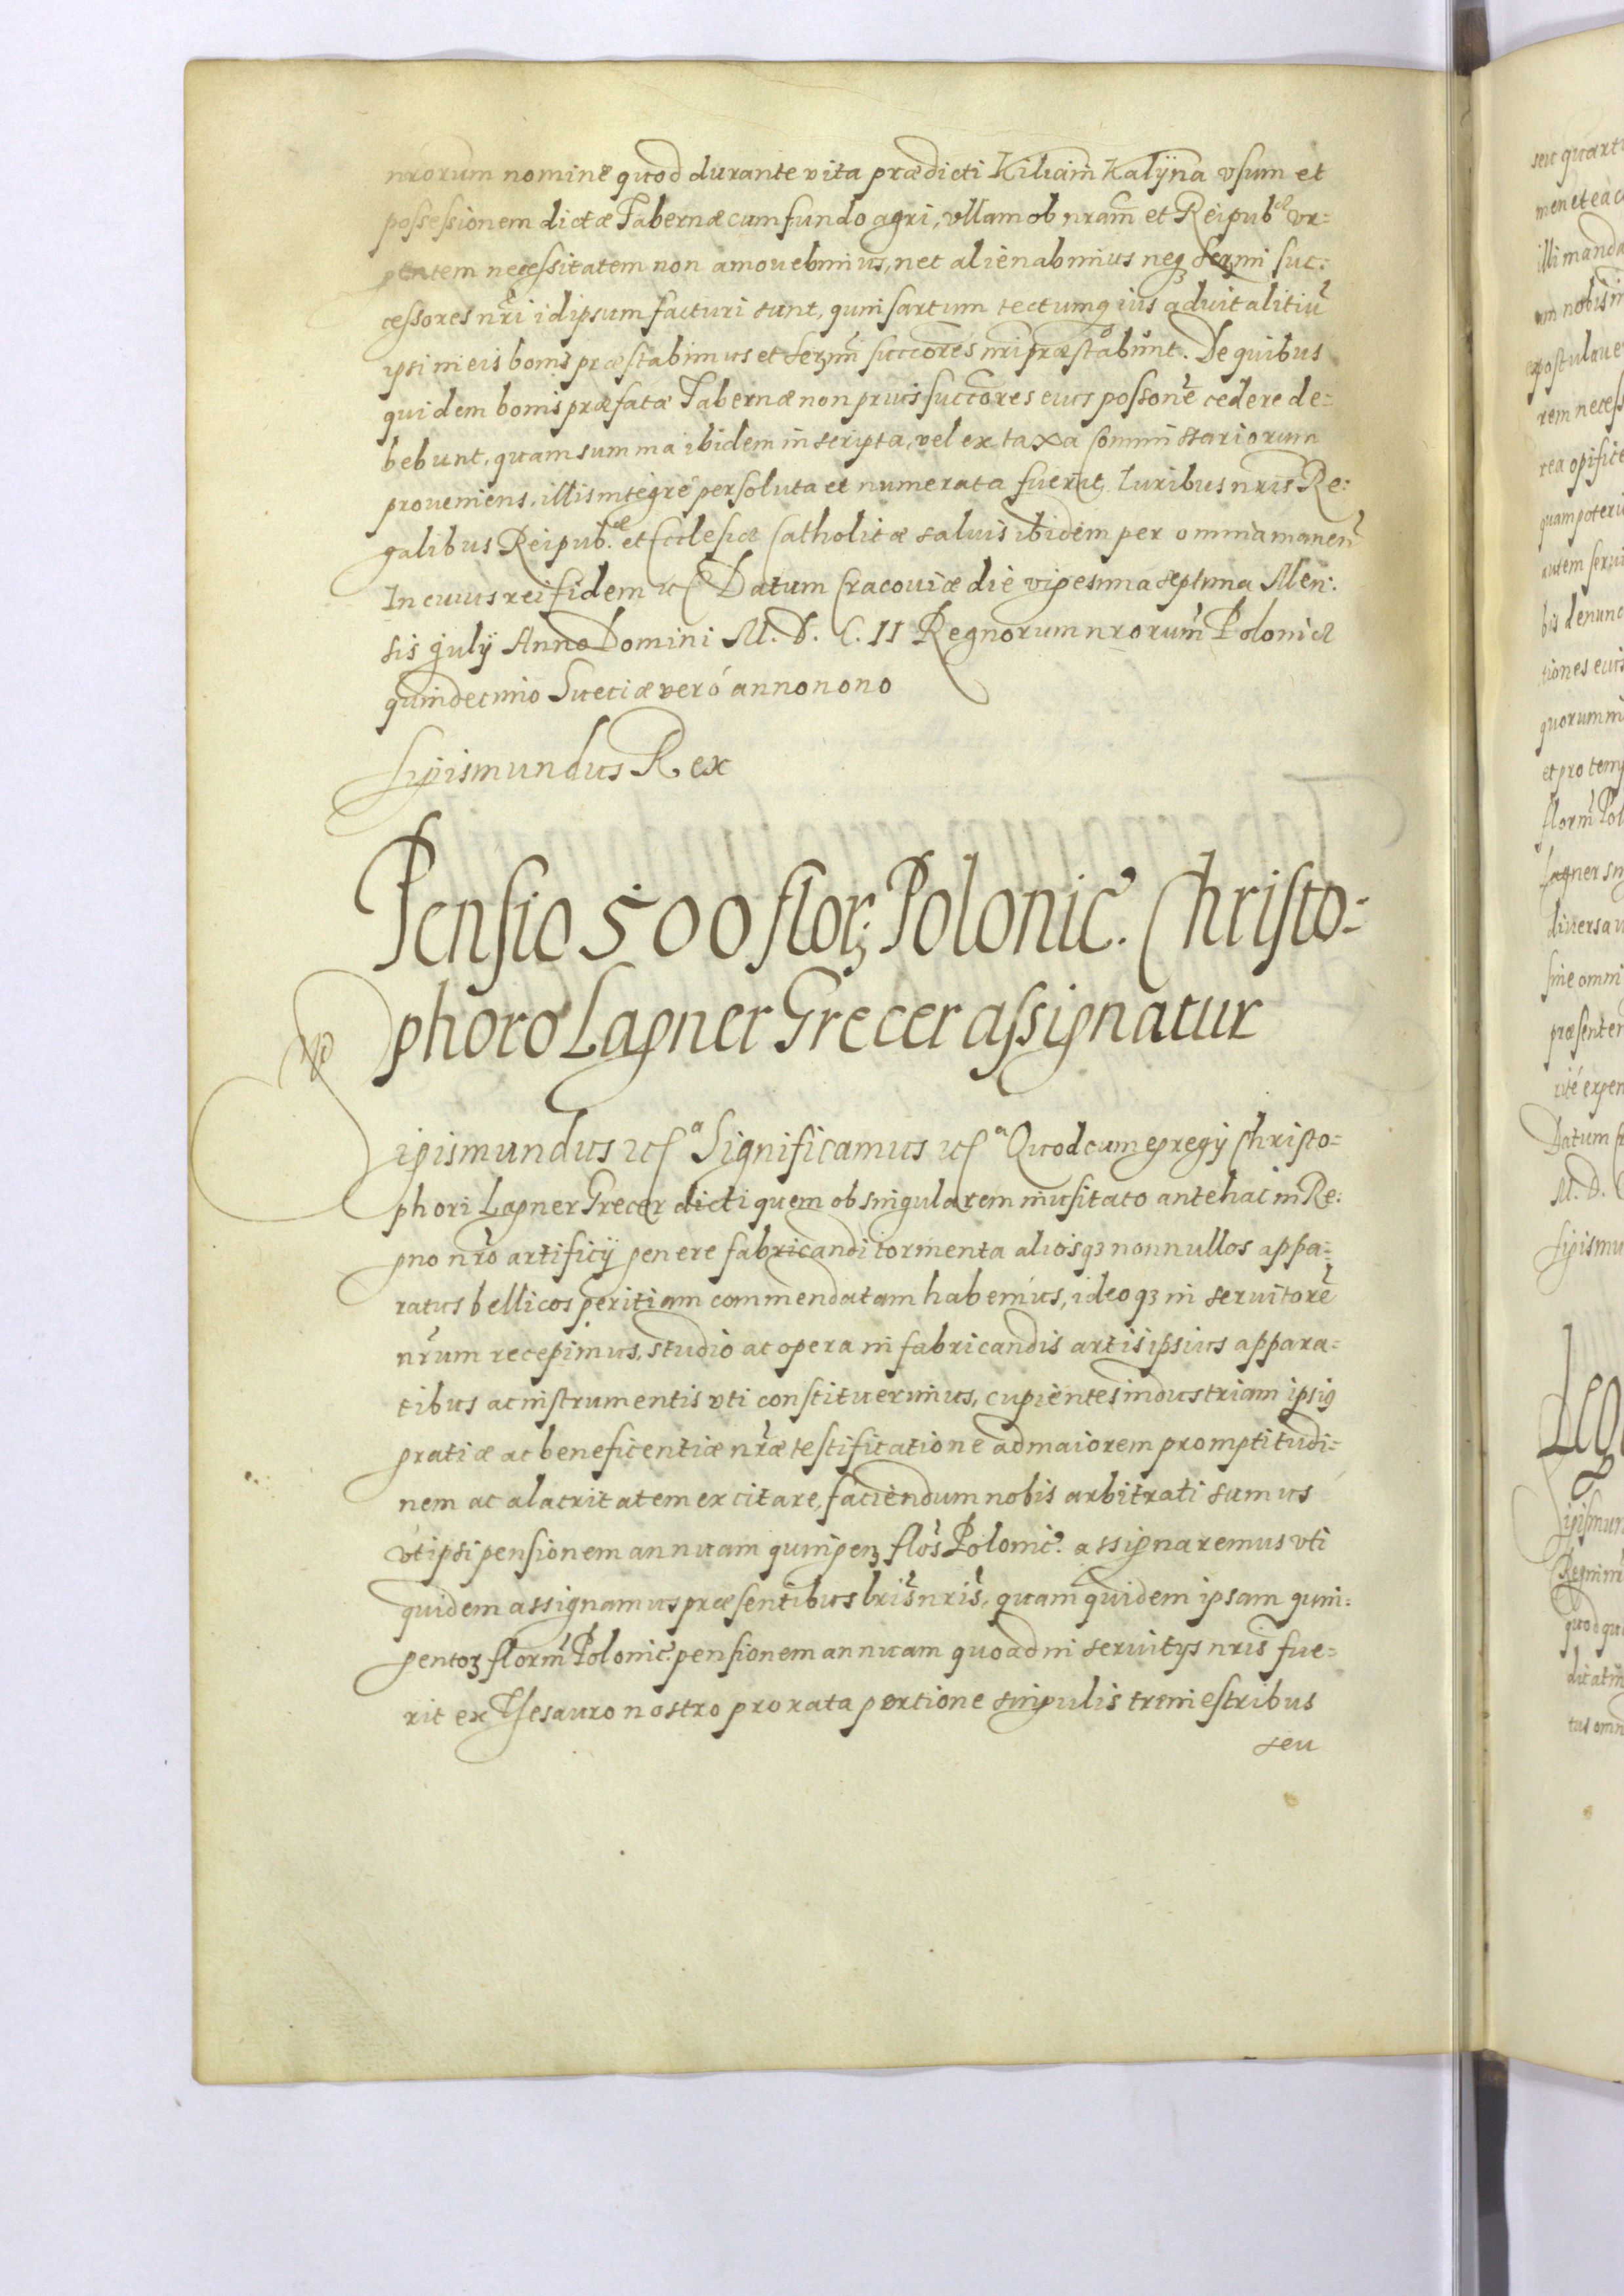 nrorum nomine quod durante vita prædicti Kiliani Kalÿna vsum et
possessionem dictæ Tabernæ cum fundo agri, vllam ob nram et Reipub:æ vr=
gentem necessitatem non amouebimus, nec alienabimus neq3 serm̃i suc:
cessores nr̃i id ipsum facturi sunt, quin sartum tectumq3 ius aduitalitiu᷉
ipsi in eis bonis præstabimus et serm̃i succores nri præstabunt. De quibus
quidem bonis præfatæ Tabernæ non prius succores eius possone᷉ cedere de=
bebunt, quam summa ibidem inscripta, vel ex taxa Commissariorum
proueniens, illis integré persoluta et numerata fuerit. Iuribus nris Re:
galibus Reipub:æ et Ecclesiæ Catholicæ saluis ibidem per omnia manen᷉
In cuius rei fidem etc Datum Cracouiæ die vigesima septima Men:
sis Julÿ Anno Domini M. D. C. II Regnorum nrorum᷉ Poloniæ
quindecimo Sueciæ veró anno nono
Sigismundus Rex
Pensio 500 flor3 Polonic. Christo=
phoro Lagner Grecer assignatur
Sigismundus etcᵃ Significamus etcᵃ Quod cum egregÿ Christo=
phori Lagner Grecer dicti quem ob singularem inusitato antehac in Re:
gno nr̃o artificÿ genere fabricandi tormenta aliosq3 nonnullos appa=
ratus bellicos peritiam commendatam habemus, ideoq3 in seruitore᷉
nr̃um recepimus, studio ac opera in fabricandis artis ipsius appara=
tibus ac instrumentis vti constituerimus, cupientes industriam ipsi9
gratiæ ac beneficentiæ nr̃æ testificatione ad maiorem promptitudi=
nem ac alacritatem excitare, faciendum nobis arbitrati sumus
vt ipsi pensionem annuam quingen3 flos᷉ Polonic. assignaremus vti
quidem assignamus præsentibus lris᷉ nris᷉, quam quidem ipsam quin=
gento3 florm᷉ Polonic. pensionem annuam quoad in seruitÿs nris fue=
rit ex Thesauro nostro pro rata portione singulis trimestribus
seu